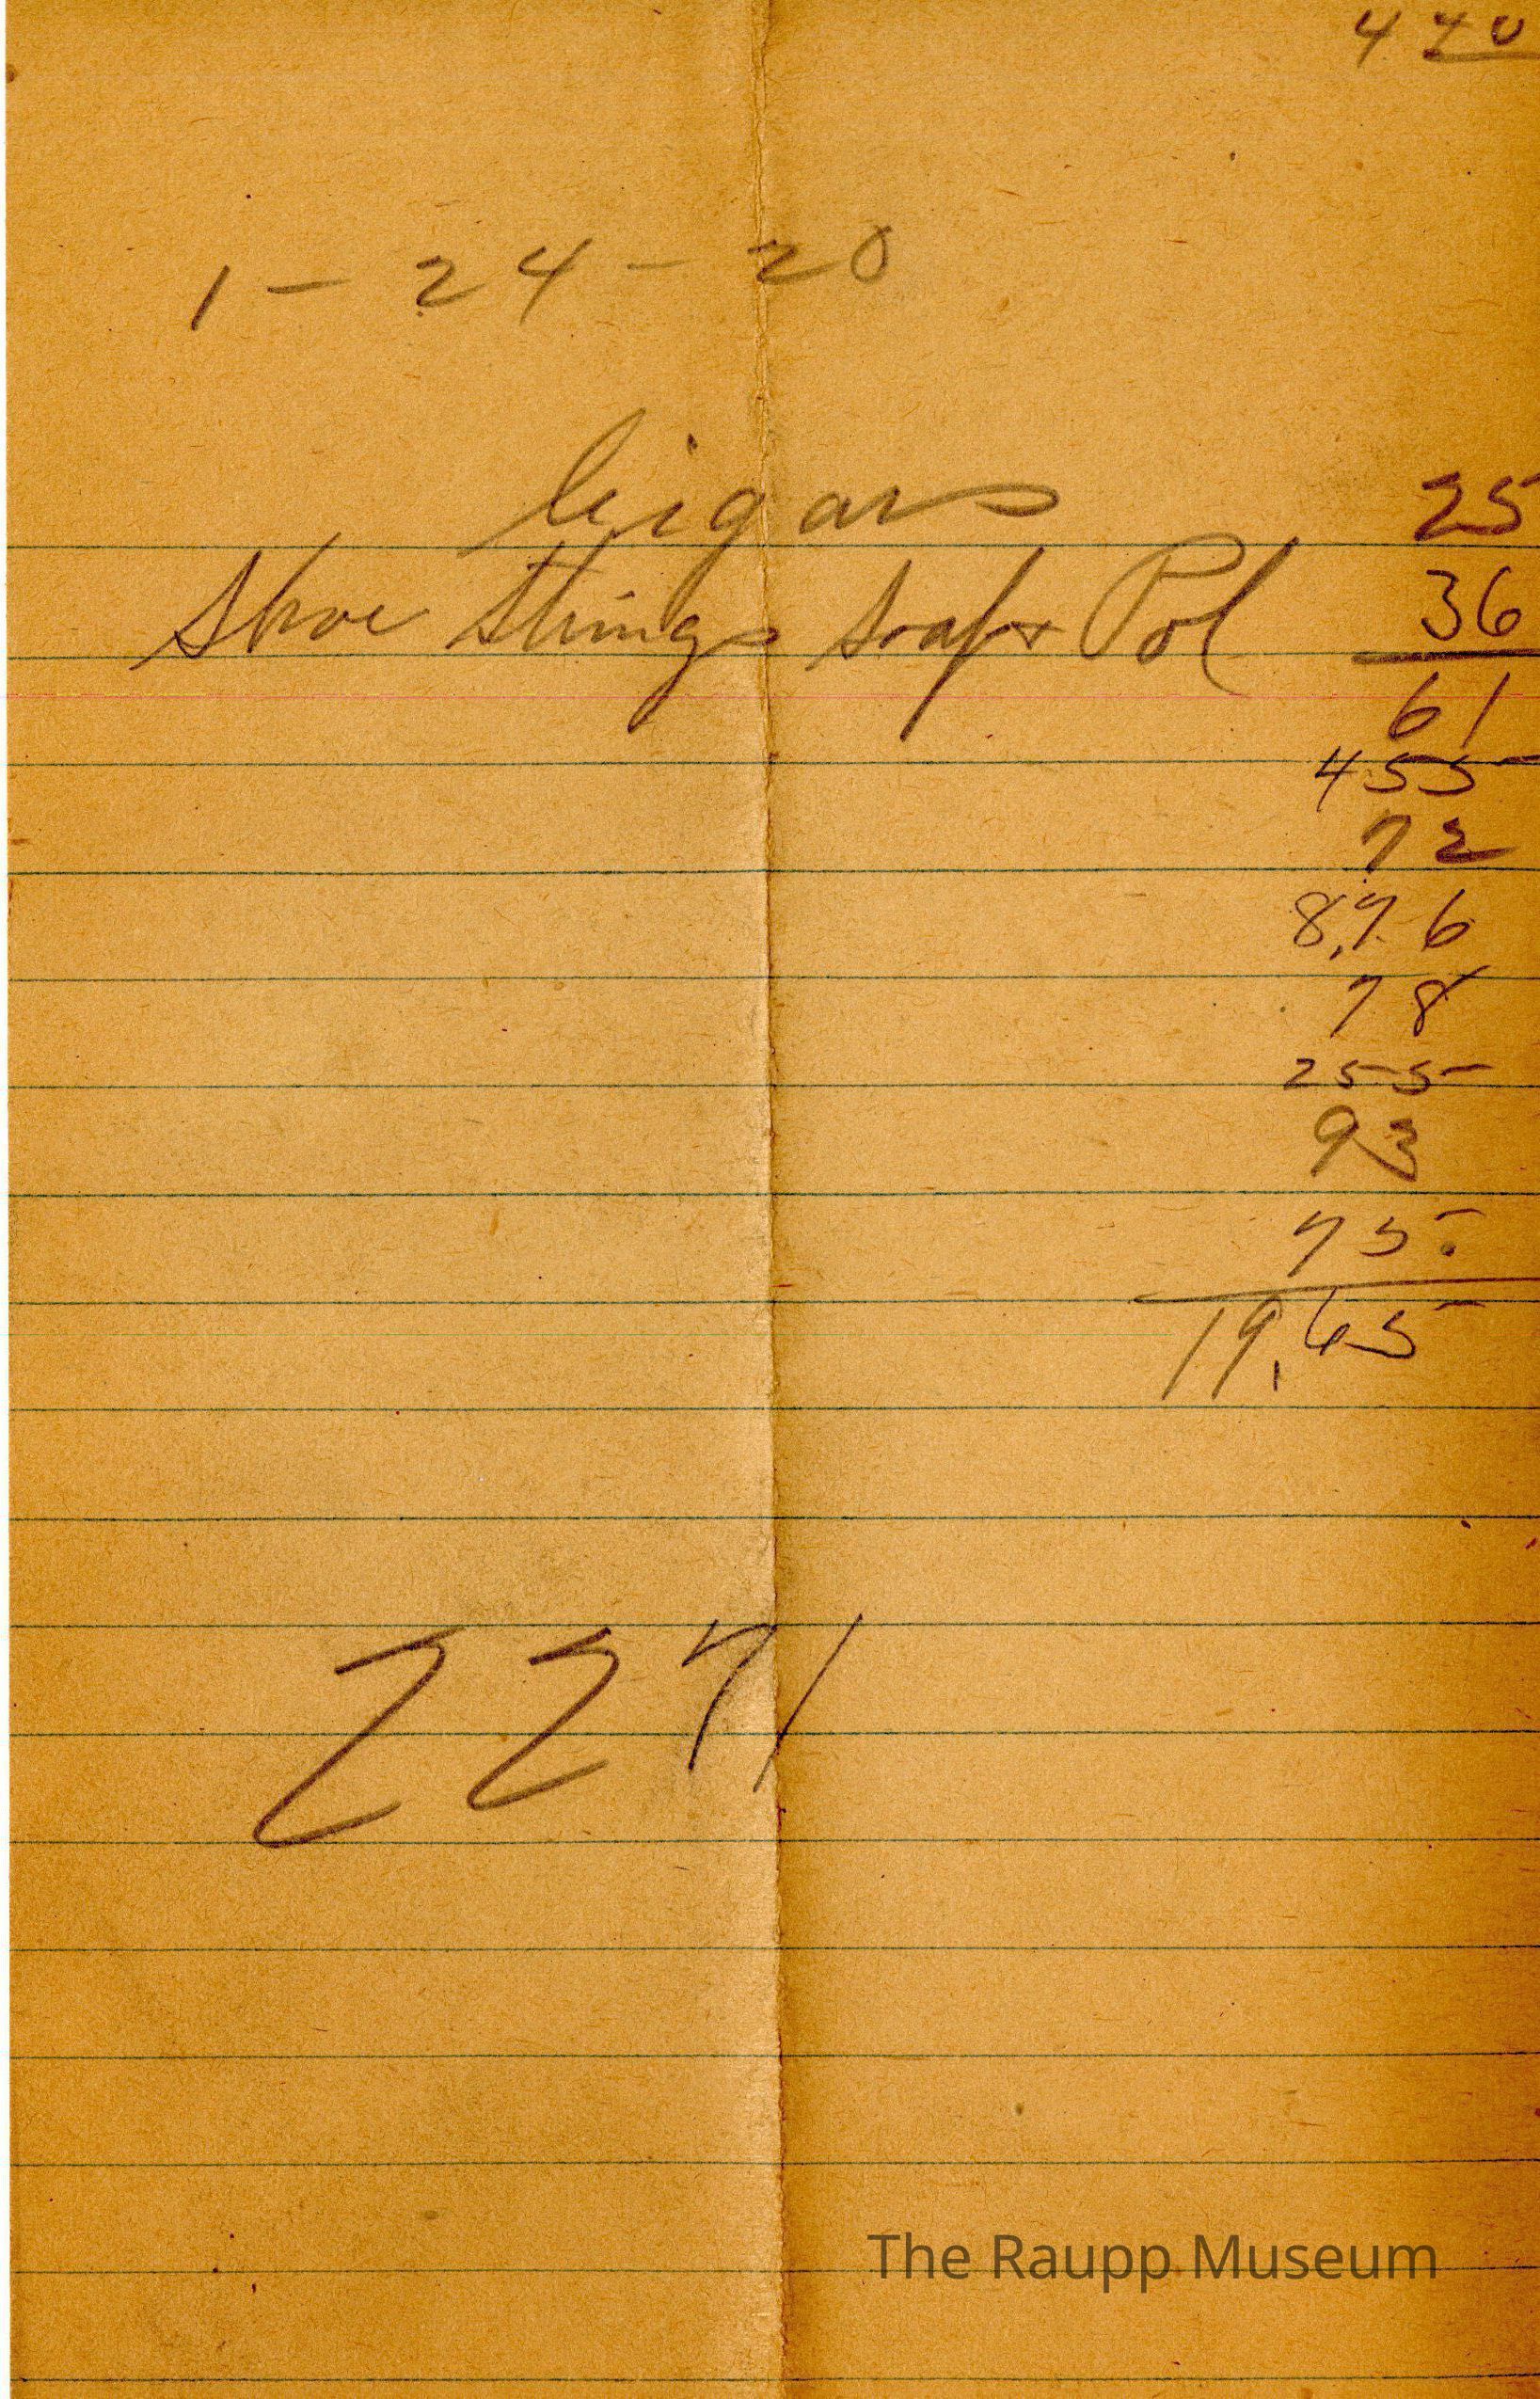 4 40
1 - 24 - 20
Cigars 25
Shoe Strings Soap & Pol 36
61
455
72
8,76
78
255
93
75
19,65
2271
The Raupp Museum